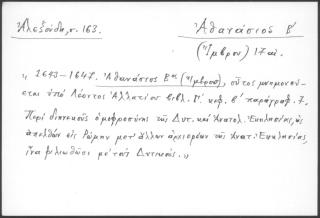 Ἀλεξούδη, σ. 163.
Ἀθανάσιος Β΄
(Ἴμβρου) 17 αἰ.
„ 1643-1647. Ἀθανάσιος Βος (Ἴμβρου), οὗτος μνημονεύ-
εται ὑπὸ Λέοντος Ἀλλατίου βιβλ. Γ΄. κεφ. β΄ παράγραφ. 7.
Περὶ διηνεκοῦς ὁμοφροσύνης τῆς Δυτ. καὶ Ἀνατολ. Ἐκκλησίας, ὡς
ἀπελθὼν εἰς Ῥώμην μετ' ἄλλων ἀρχιερέων τῆς Ἀνατ. Ἐκκλησίας,
ἵνα φιλιωθῶσι μὲ τοὺς Δυτικούς. „